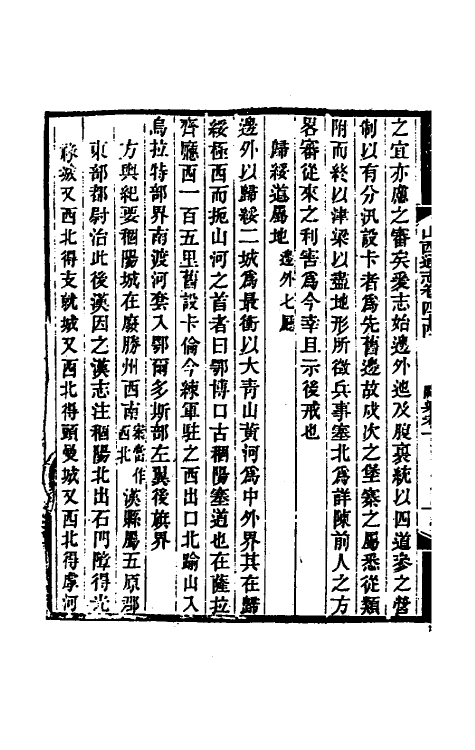 之宜亦慮之審矣爰志始邊外迤及腹裏統以四道參之營
制以有分汛設卡者爲先舊邊故戍次之堡寨之屬悉從類
附而終以津梁以盡地形所徵兵事塞北爲詳陳前人之方
畧審從來之利害爲今幸且示後戒也
歸綏道屬地 邊外七廳
邊外以歸綏二城爲最衝以大青山黃河爲中外界其在歸
綏極西而扼山河之首者曰鄂博口古稒陽塞道也在薩拉
齊廳西一百五里舊設卡倫今練軍駐之西出口北踰山入
烏拉特部界南渡河套入鄂爾多斯部左翼後旗界
方輿紀要稒陽城在廢勝州西南案當作西北漢縣屬五原郡
東部都尉治此後漢因之漢志注稒陽北出石門障得光
祿城又西北得支就城又西北得頭曼城又西北得虖河
山西通志卷四十